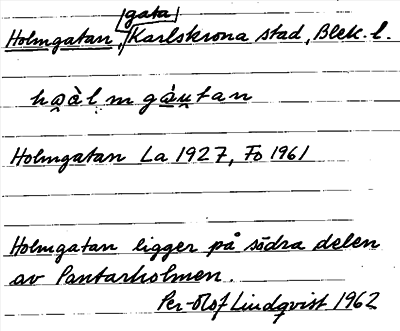 gata
Holmgatan, Karlskrona stad, Blek. l.
ho̯àl̤m gàu̯tan
Holmgatan La 1927, Fo 1961
Holmgatan ligger på södra delen
av Pantarholmen.
Per-Olof Lindqvist 1962